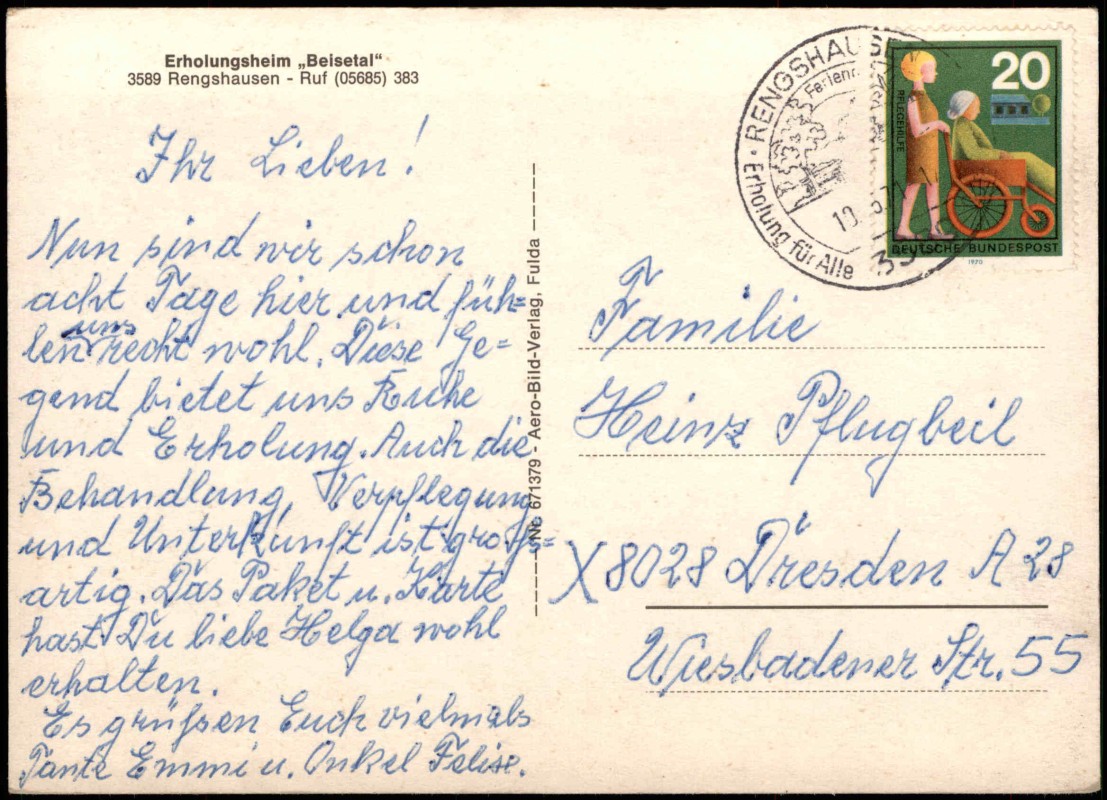 Erholungsheim „Beisetal“
3589 Rengshausen - Ruf (05685) 383
Ihr Lieben!
Nun sind wir schon
acht Tage hier und füh=
len uns recht wohl. Diese Ge=
gend bietet uns Ruhe
und Erholung. Auch die
Behandlung, Verpflegung
und Unterkunft ist groß=
artig. Das Paket u. Karte
hast Du liebe Helga wohl
erhalten.
Es grüßen Euch vielmals
Tante Emmi u. Onkel Felise.
Nr. 671379 - Aero-Bild-Verlag, Fulda
RENGSHAUSE
Ferien
Erholung für Alle
10
35
20
PFLEGEHILFE
DEUTSCHE BUNDESPOST
1970
Familie
Heinz Pflugbeil
X8028 Dresden A 28
Wiesbadener Str. 55